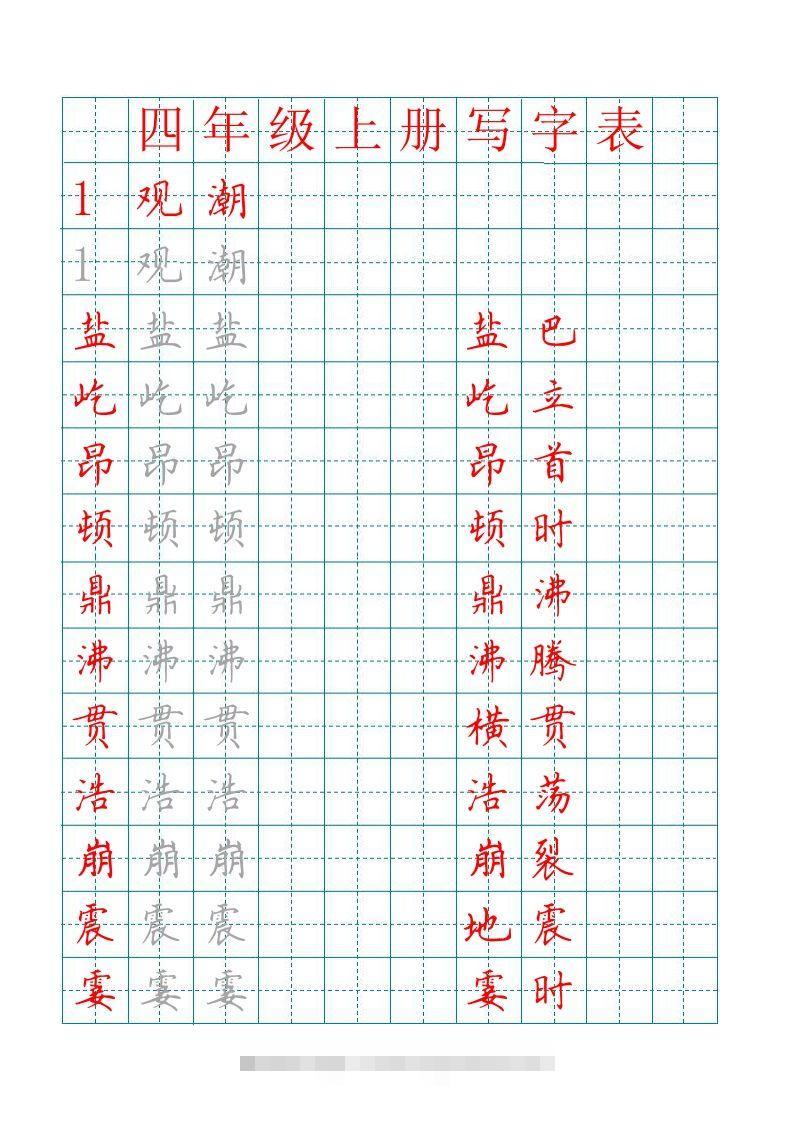 四年级上册写字表
1 观潮
1 观潮
盐 盐 盐 盐巴
屹 屹 屹 屹立
昂 昂 昂 昂首
顿 顿 顿 顿时
鼎 鼎 鼎 鼎沸
沸 沸 沸 沸腾
贯 贯 贯 横贯
浩 浩 浩 浩荡
崩 崩 崩 崩裂
震 震 震 地震
霎 霎 霎 霎时